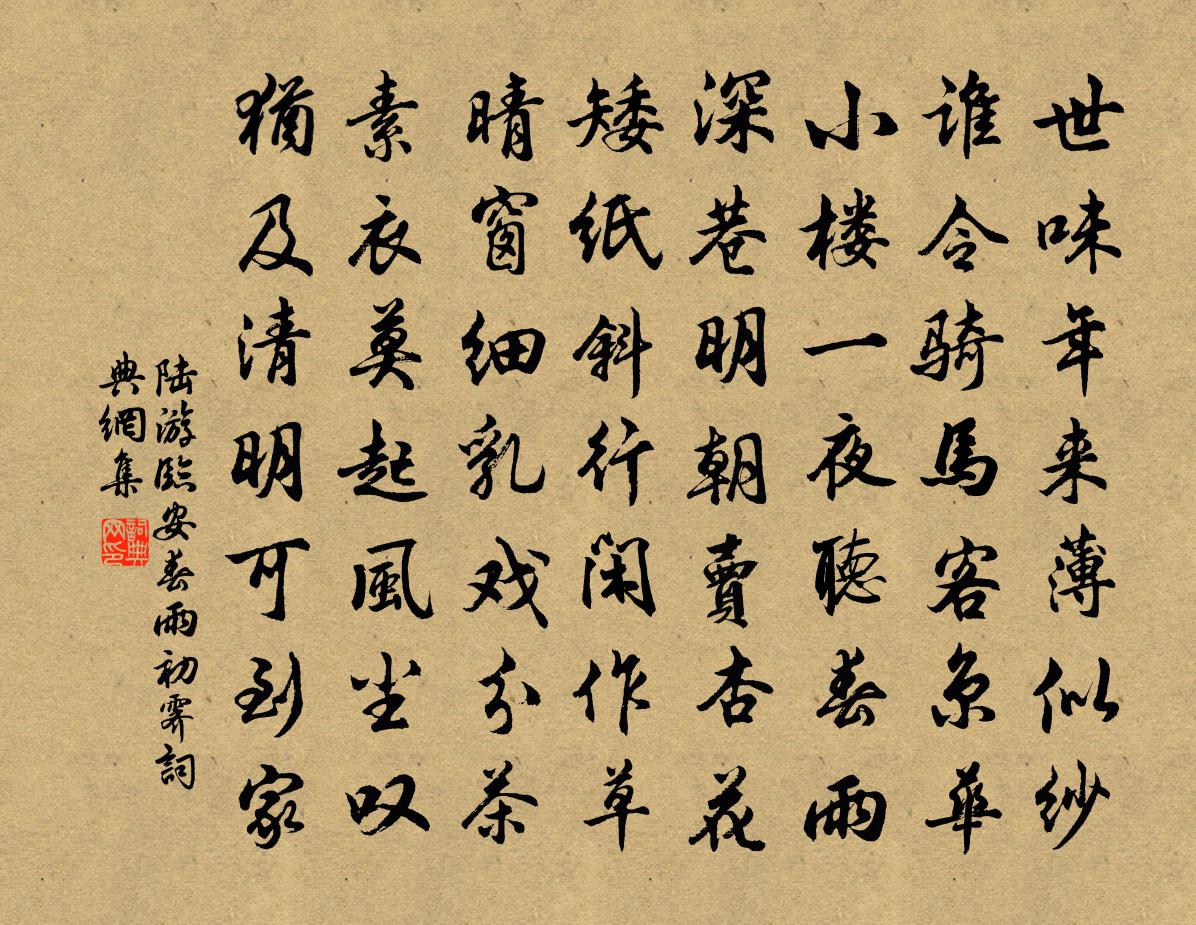 世味年来薄似纱
谁令骑馬客京華
小楼一夜聴春雨
深巷明朝賣杏花
矮纸斜行闲作草
晴窗细乳戏分茶
素衣莫起風尘叹
犹及清明可到家
陆游臨安春雨初霁詞
典網集
詞典
网印